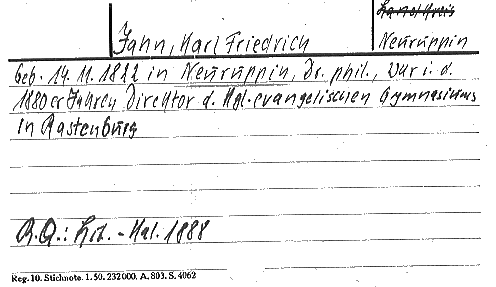 Landkreis
Jahn, Karl Friedrich
Neuruppin
geb. 14.11.1822 in Neuruppin, Dr. phil., war i. d.
1880er Jahren Direktor d. Kgl. evangelischen Gymnasiums
in Rastenburg
B.Q.: Hob. - Kal. 1888
Reg. 10. Stichnote. 1. 50. 232000. A. 803. S. 4062